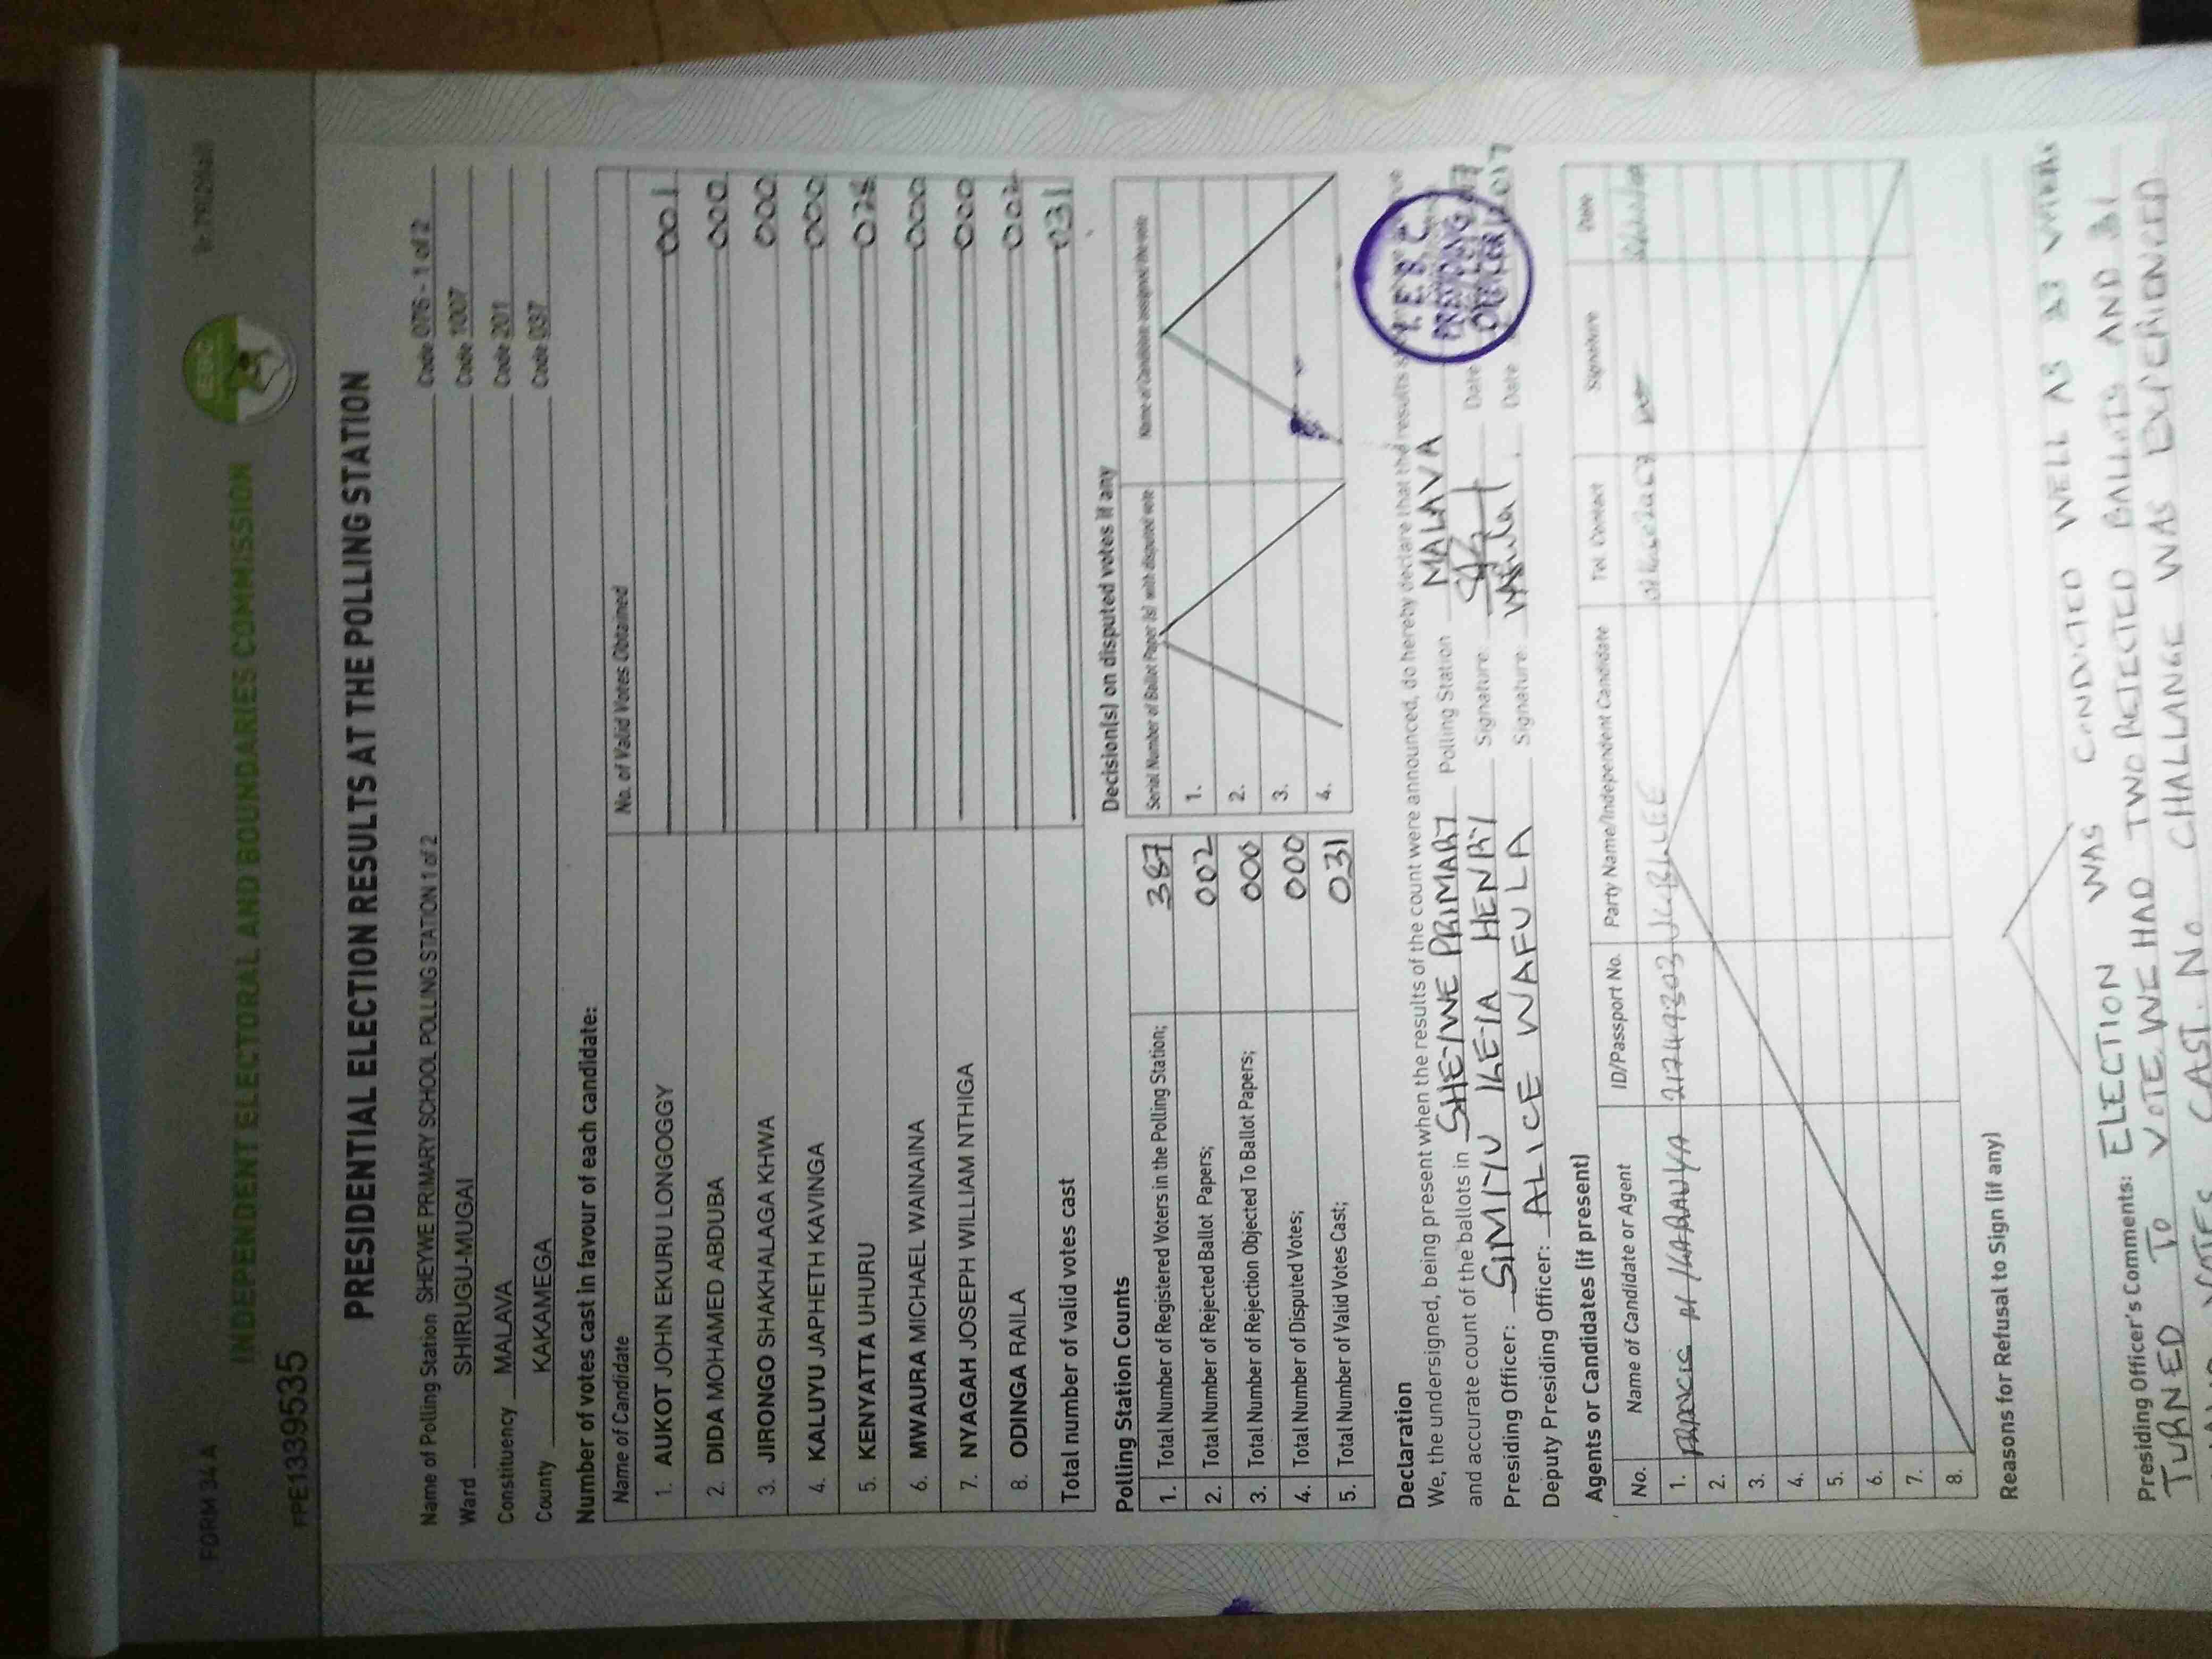 FORM 34 A
INDEPENDENT ELECTORAL AND BOUNDARIES COMMISSION
IEBC
FPE1339535
PRESIDENTIAL ELECTION RESULTS AT THE POLLING STATION
Name of Polling Station SHEYWE PRIMARY SCHOOL POLLING STATION 1 of 2 Code 076 - 1 of 2
Ward SHIRUGU-MUGAI Code 1007
Constituency MALAVA Code 201
County KAKAMEGA Code 037
Number of votes cast in favour of each candidate:
Name of Candidate No. of Valid Votes Obtained
1. AUKOT JOHN EKURU LONGOGGY 001
2. DIDA MOHAMED ABDUBA 000
3. JIRONGO SHAKHALAGA KHWA 000
4. KALUYU JAPHETH KAVINGA 000
5. KENYATTA UHURU 028
6. MWAURA MICHAEL WAINAINA 000
7. NYAGAH JOSEPH WILLIAM NTHIGA 000
8. ODINGA RAILA 002
Total number of valid votes cast 031
Polling Station Counts
1. Total Number of Registered Voters in the Polling Station; 387
2. Total Number of Rejected Ballot Papers; 002
3. Total Number of Rejection Objected To Ballot Papers; 000
4. Total Number of Disputed Votes; 000
5. Total Number of Valid Votes Cast; 031
Decision(s) on disputed votes if any
Serial Number of Ballot Paper (s) with disputed vote Name of Candidate assigned the vote
1.
2.
3.
4.
Declaration
We, the undersigned, being present when the results of the count were announced, do hereby declare that the results
and accurate count of the ballots in SHEYWE PRIMARY Polling Station MALAVA
Presiding Officer: SIMIYU KEIA HENRY Signature Date
Deputy Presiding Officer: ALICE WAFULA Signature Date
I.E.B.C.
PRESIDING
OFFICER
Agents or Candidates (if present)
No. Name of Candidate or Agent ID/Passport No. Party Name/Independent Candidate Tel. Contact Signature Date
1. FRANCIS 21749303 JUBILEE
2.
3.
4.
5.
6.
7.
8.
Reasons for Refusal to Sign (if any)
Presiding Officer's Comments: ELECTION WAS CONDUCTED WELL AS 33 VOTERS
TURNED TO VOTE. WE HAD TWO REJECTED BALLOTS AND 31
VOTES CAST. No CHALLANGE WAS EXPERIENCED